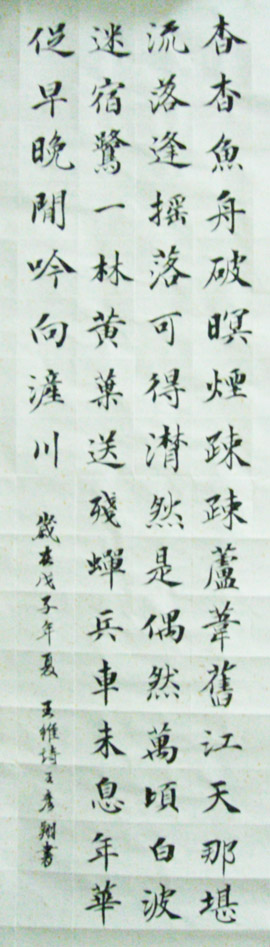 杳杳魚舟破暝煙踈踈蘆葦舊江天那堪
流落逢搖落可得潸然是偶然萬頃白波
迷宿鷺一林黃葉送殘蟬兵車未息年華
促早晚閒吟向滻川
歲在戊子年夏 王維王彥翔書